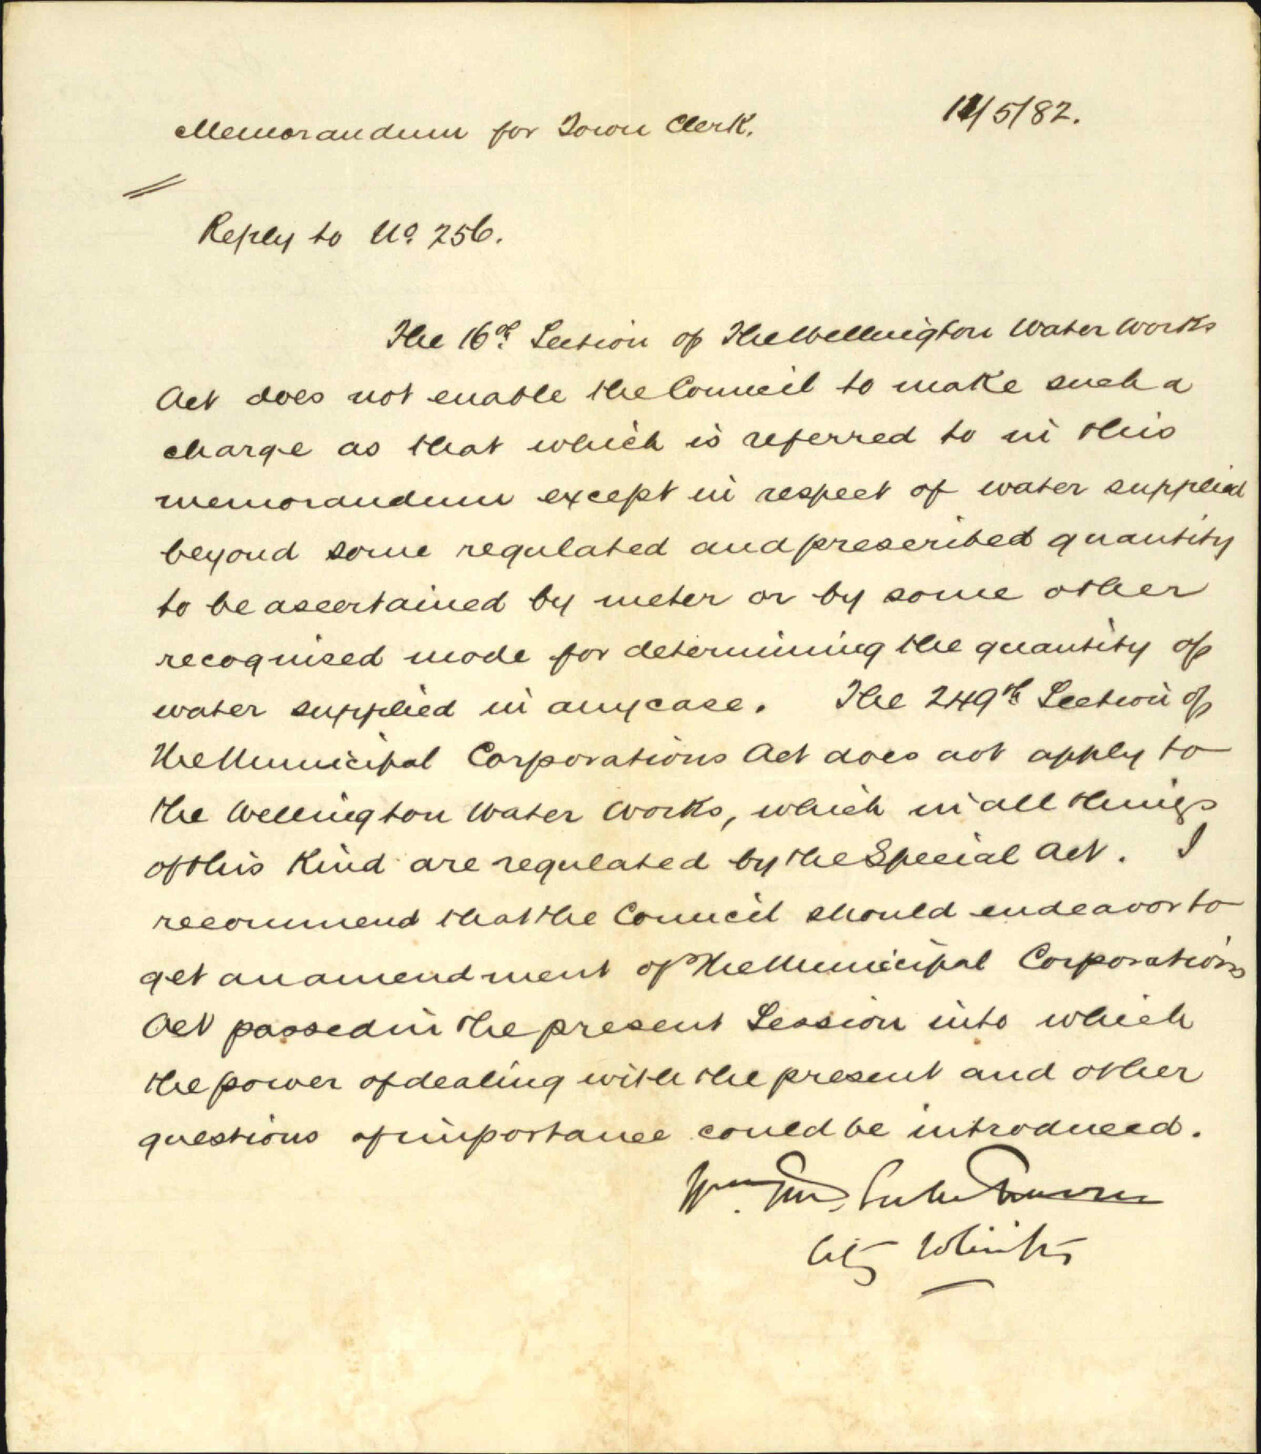 Memorandum for Town Clerk.
/5/82.
Reply to No. 256.
The 16th Section of The Wellington Water Works
Act does not enable the Council to make such a
charge as that which is referred to in this
memorandum except in respect of water supplied
beyond some regulated and prescribed quantity
to be ascertained by meter or by some other
recognised mode for determining the quantity of
water supplied in any case. The 249th Section of
The Municipal Corporations Act does not apply to
the Wellington Water Works, which in all things
of this Kind are regulated by the Special Act. I
recommend that the Council should endeavor to
get an amendment of The Municipal Corporations
Act passed in the present Session into which
the power of dealing with the present and other
questions of importance could be introduced.
Wm. Travers
City Solicitor